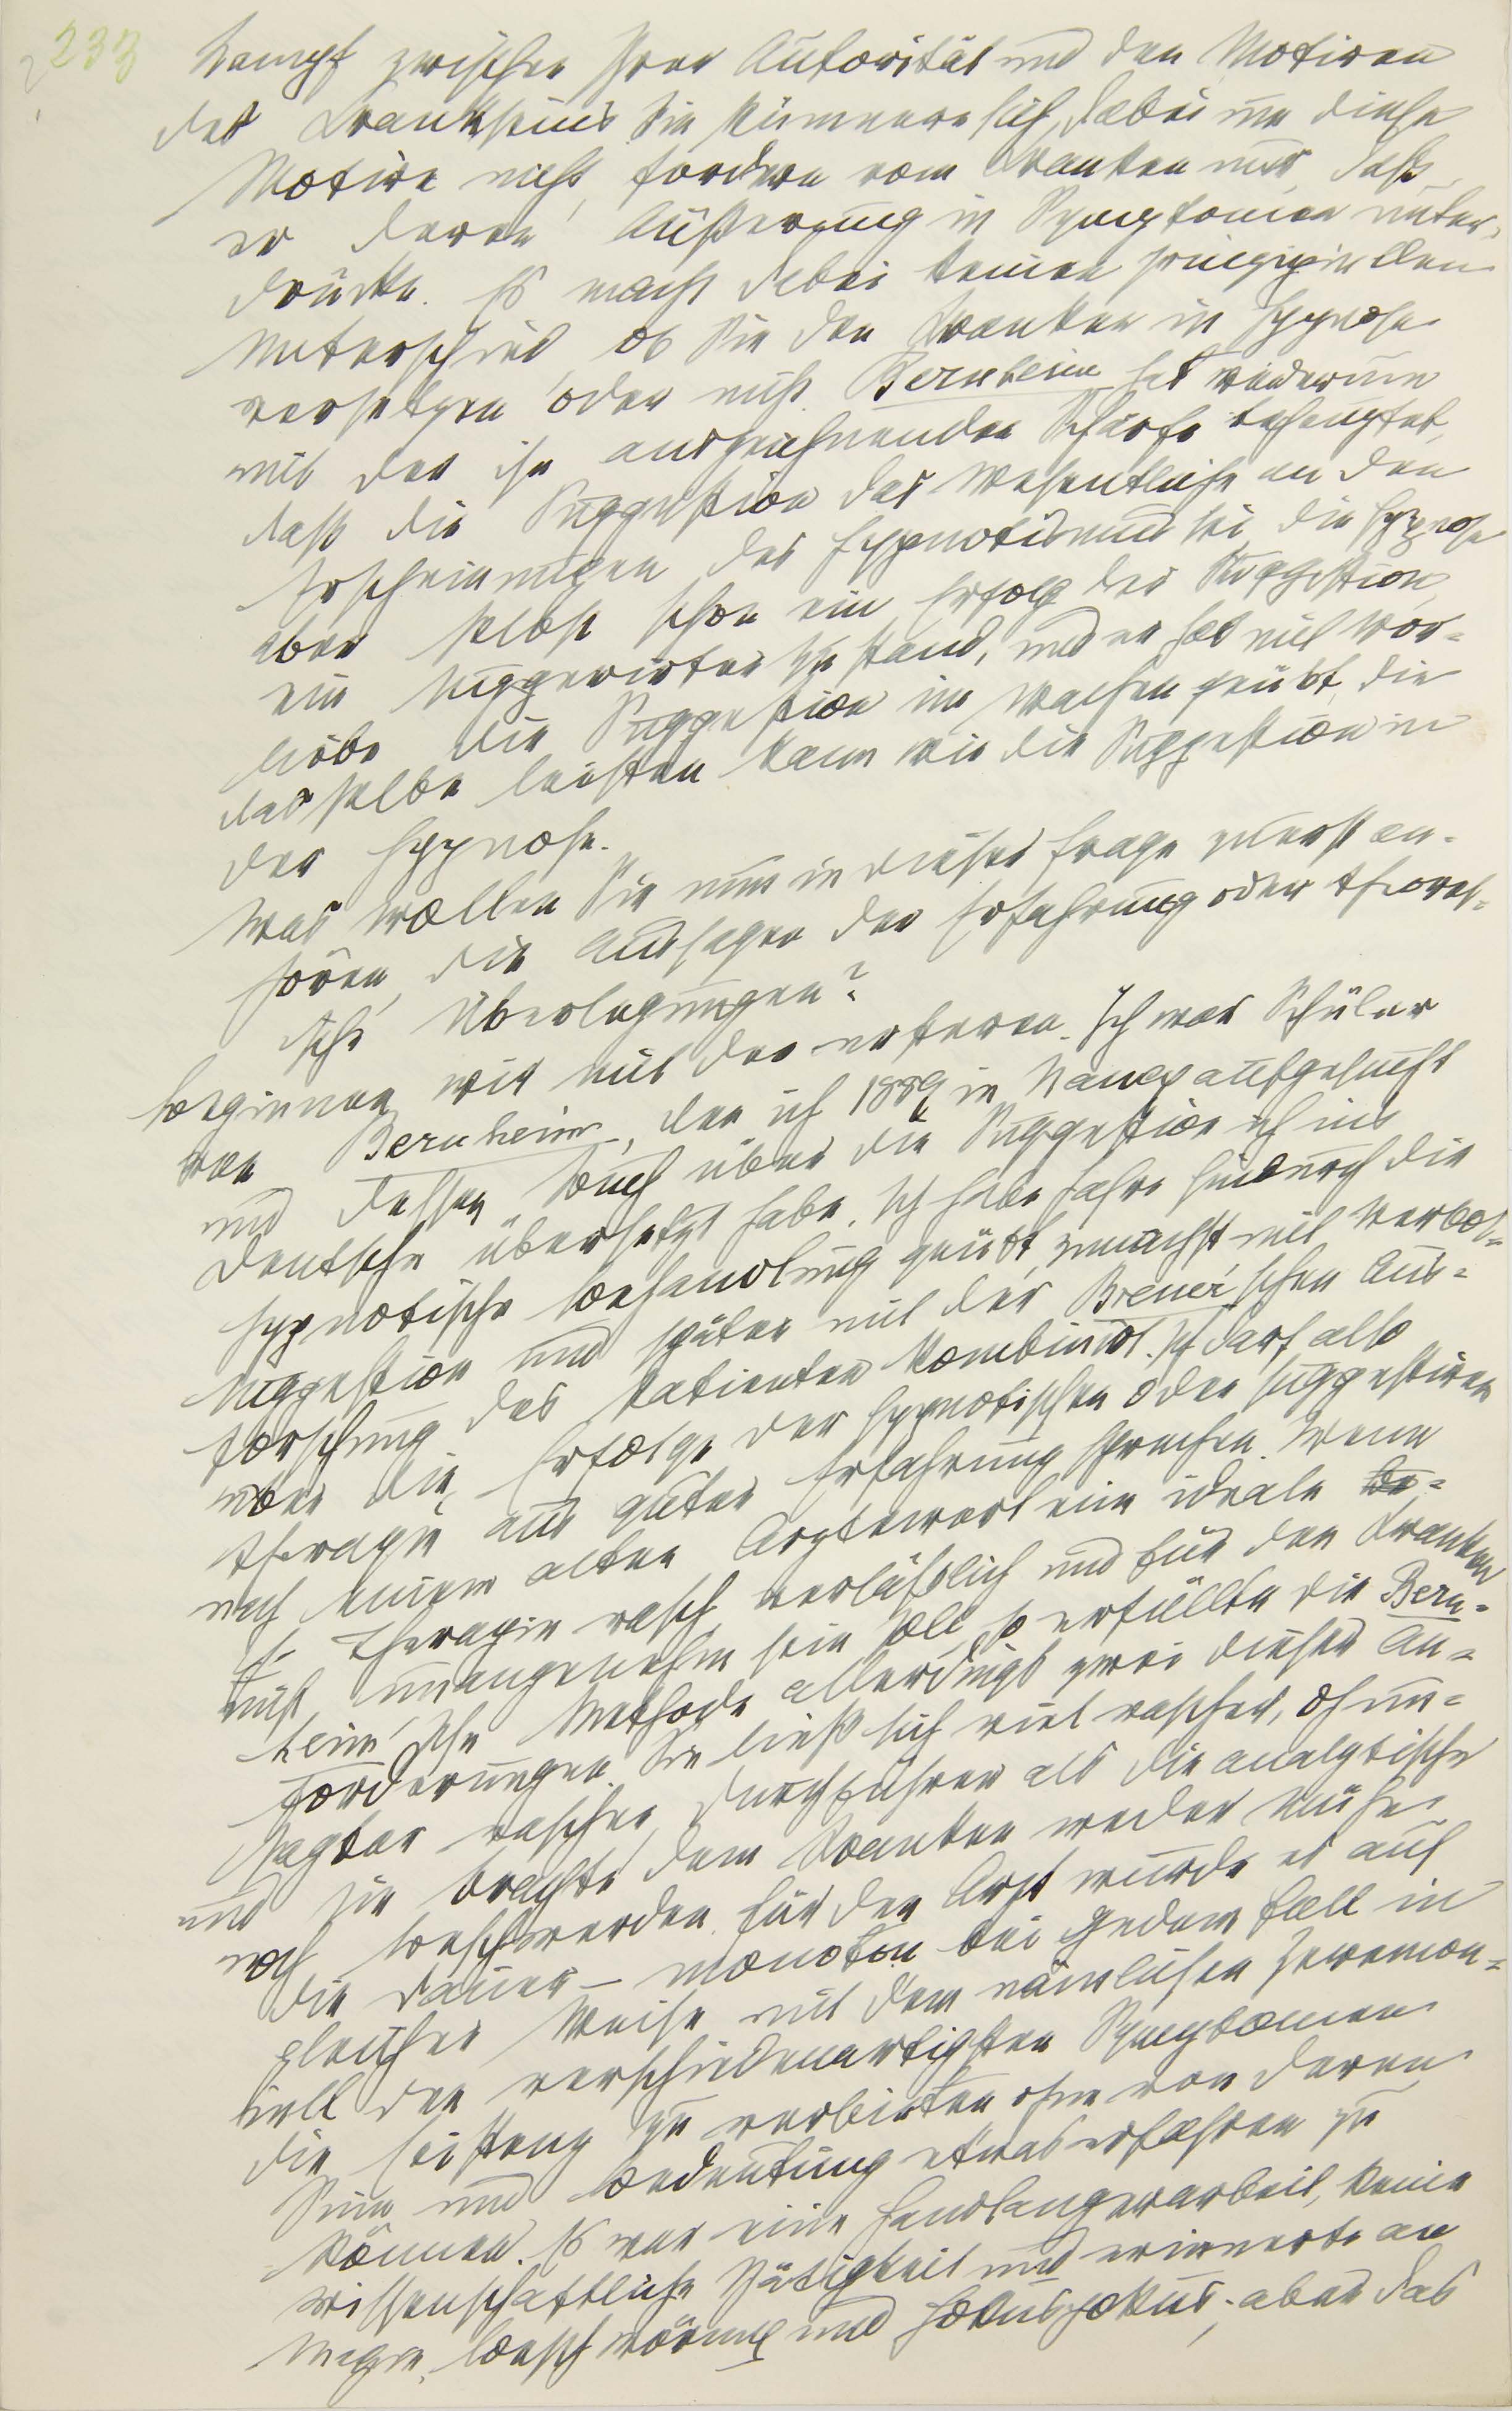 233
Kampf zwischen Ihrer Autorität und den Motiven
des Krankseins. Sie kümmern sich dabei um diese
Motive nicht, fordern vom Kranken nur, daß
er deren Äußerung in Symptomen unter-
drücke. Es macht dabei keinen prinzipiellen
Unterschied, ob Sie den Kranken in Hypnose
versetzen oder nicht. Bernheim hat wiederum
mit der ihn auszeichnenden Schärfe behauptet,
daß die Suggestion das Wesentliche an den
Erscheinungen des Hypnotismus sei, die Hypnose
aber selbst schon ein Erfolg der Suggestion,
ein suggerirter Zustand, und er hat mit Vor-
liebe die Suggestion im Wachen geübt, die
dasselbe leisten kann wie die Suggestion in
der Hypnose.
Was wollen Sie nun in dieser Frage zuerst an-
hören, die Aussagen der Erfahrung oder theoret-
ische Überlegungen?
Beginnen wir mit der ersteren. Ich war Schüler
von Bernheim, den ich 1889 in Nancy aufgesucht
und dessen Buch über die Suggestion ich ins
Deutsche übersetzt habe. Ich habe Jahre hindurch die
hypnotische Behandlung geübt, zunächst mit Verbot-
suggestion und später mit der Breuer'schen Aus-
forschung des Patienten kombinirt. Ich darf also
über die Erfolge der hypnotischen oder suggestiven
Therapie aus guter Erfahrung sprechen. Wenn
nach einem alten Ärztewort eine ideale Be-
Therapie rasch, verläßlich und für den Kranken
nicht unangenehm sein soll, so erfüllte die Bern-
heim'sche Methode allerdings zwei dieser An-
forderungen. Sie ließ sich viel rascher, d h un-
sagbar rascher, durchführen als die analytische
und sie brachte dem Kranken weder Mühe
noch Beschwerden. Für den Arzt wurde es auf
die Dauer – monoton: bei jedem Fall in
gleicher Weise mit dem nämlichen Zeremon-
iell den verschiedenartigsten Symptomen
die Existenz zu verbieten, ohne von deren
Sinn und Bedeutung etwas erfahren zu
können. Es war eine Handlangerarbeit, keine
wissenschaftliche Tätigkeit und erinnerte an
Magie, Beschwörung und Hokuspokus; aber das